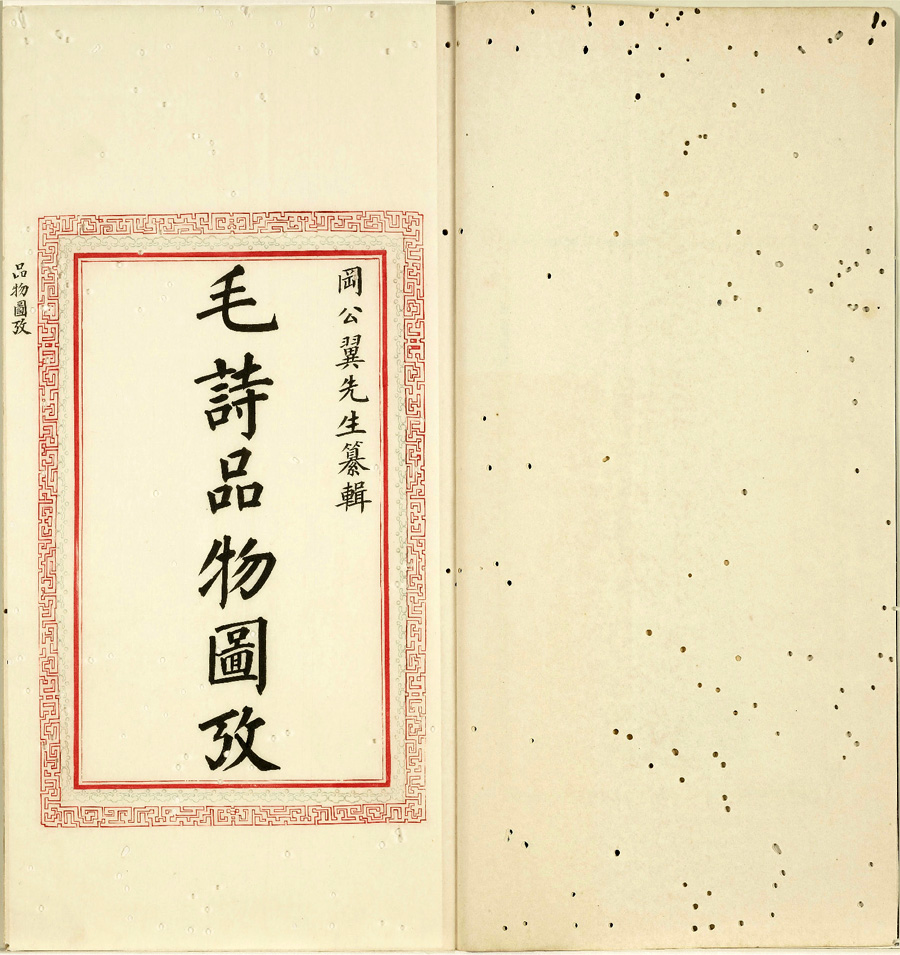 岡公翼先生纂輯
毛詩品物圖攷
品物圖攷